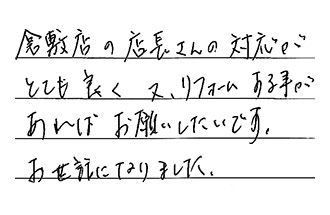 倉敷店の店長さんの対応が
とても良く 又、リフォームある事が
あればお願いしたいです。
お世話になりました。